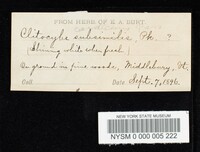 FROM HERB. OF E. A. BURT.
Clitocybe subsimilis, Pk. ?
(Shining white when fresh)
On ground in pine woods, Middlebury, Vt.
Coll. Date, Sept. 7, 1896.
NEW YORK STATE MUSEUM
NYSM 0 000 005 222